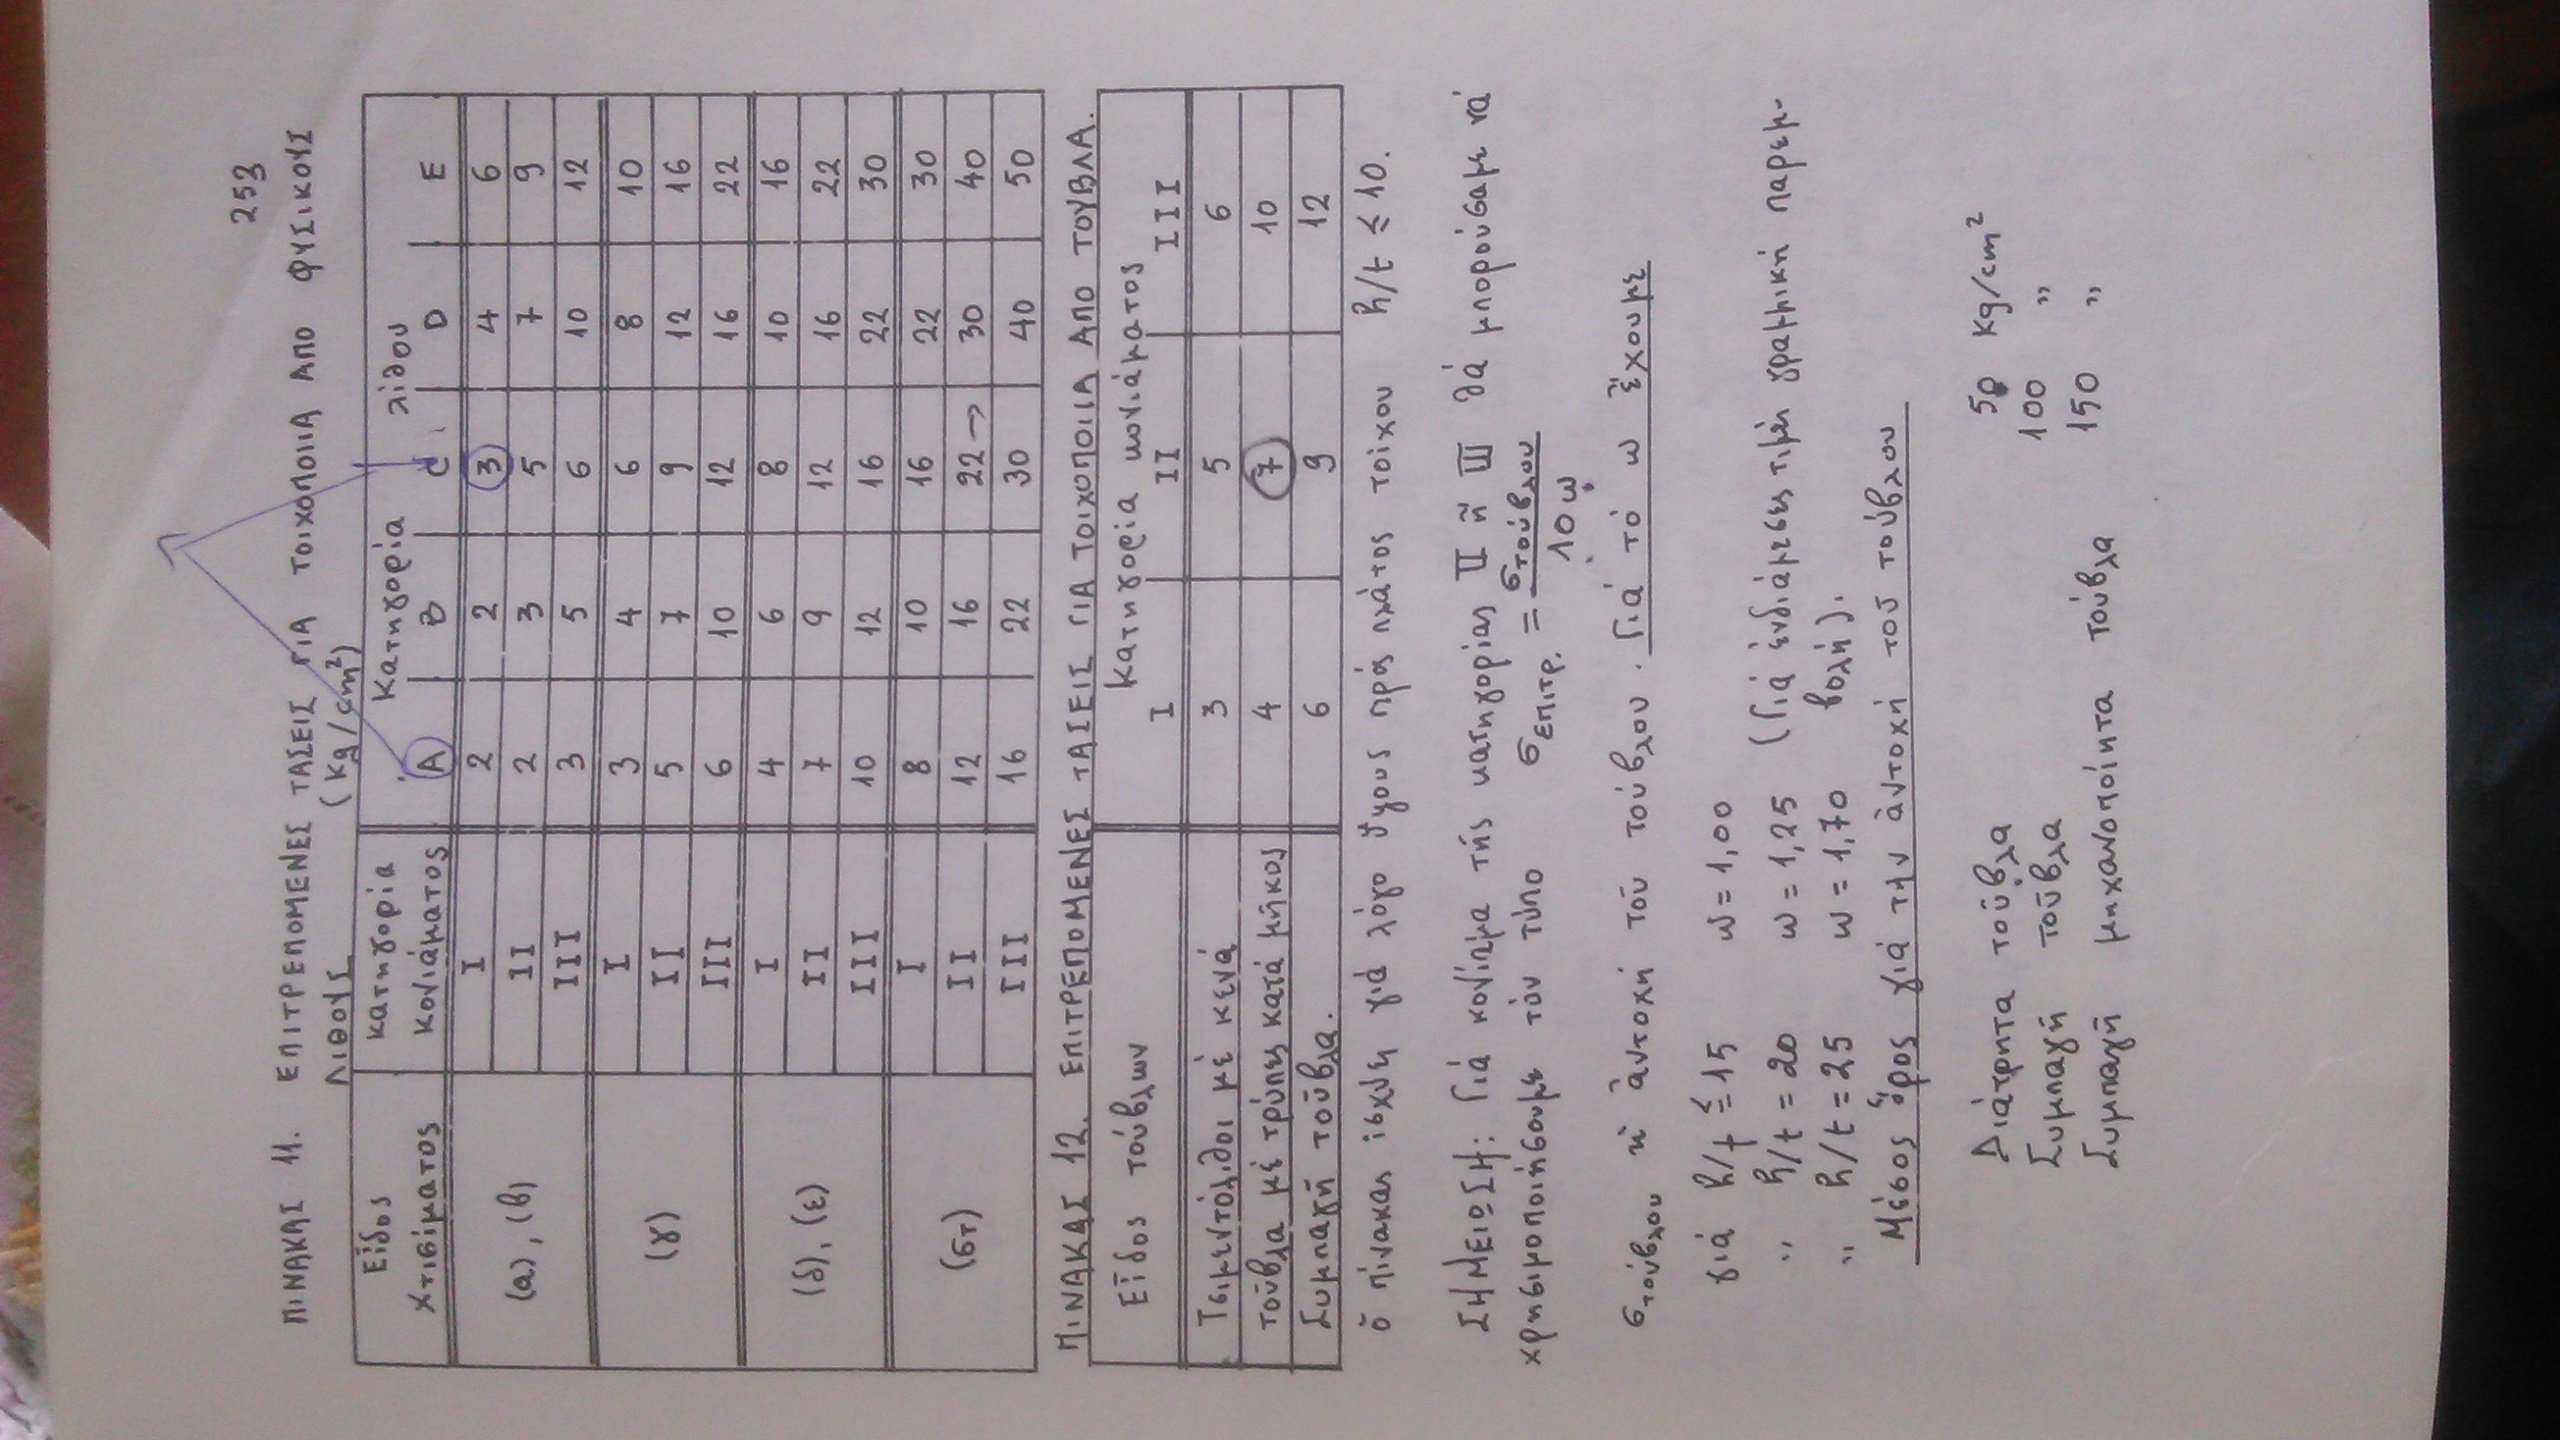 253
ΠΙΝΑΚΑΣ 11. ΕΠΙΤΡΕΠΟΜΕΝΕΣ ΤΑΣΕΙΣ ΓΙΑ ΤΟΙΧΟΠΟΙΙΑ ΑΠΟ ΦΥΣΙΚΟΥΣ
ΛΙΘΟΥΣ (Kg/cm²)
Εἶδος χτισίματος κατηγορία κονιάματος Κατηγορία λίθου
A B C D E
(α),(β) I 2 2 3 4 6
II 2 3 5 7 9
III 3 5 6 10 12
(γ) I 3 4 6 8 10
II 5 7 9 12 16
III 6 10 12 16 22
(δ),(ε) I 4 6 8 10 16
II 7 9 12 16 22
III 10 12 16 22 30
(στ) I 8 10 16 22 30
II 12 16 22→ 30 40
III 16 22 30 40 50
ΠΙΝΑΚΑΣ 12. ΕΠΙΤΡΕΠΟΜΕΝΕΣ ΤΑΣΕΙΣ ΓΙΑ ΤΟΙΧΟΠΟΙΙΑ ΑΠΟ ΤΟΥΒΛΑ.
Εἶδος τούβλων Κατηγορία κονιάματος
I II III
Τσιμεντόλιθοι μέ κενά 3 5 6
τοῦβλα μέ τρύπες κατά μῆκος 4 7 10
Συμπαγῆ τοῦβλα. 6 9 12
ὁ πίνακας ἰσχύει γιά λόγο ὕψους πρός πλάτος τοίχου h/t ≤ 10.
ΣΗΜΕΙΩΣΗ: Γιά κονίαμα τῆς κατηγορίας II ἤ III θά μπορούσαμε νά
χρησιμοποιήσουμε τόν τύπο σεπιτρ. = στούβλου / 10ω
στούβλου ἡ ἀντοχή τοῦ τούβλου. Γιά τό ω ἔχουμε
γιά h/t ≤ 15 ω = 1,00
„ h/t = 20 ω = 1,25 (Γιά ἐνδιάμεσες τιμές γραμμική παρεμ-
„ h/t = 25 ω = 1,70 βολή).
Μέσος ὅρος γιά τήν ἀντοχή τοῦ τούβλου
Διάτρητα τοῦβλα 50 Kg/cm²
Συμπαγῆ τοῦβλα 100 „
Συμπαγῆ μηχανοποίητα τοῦβλα 150 „